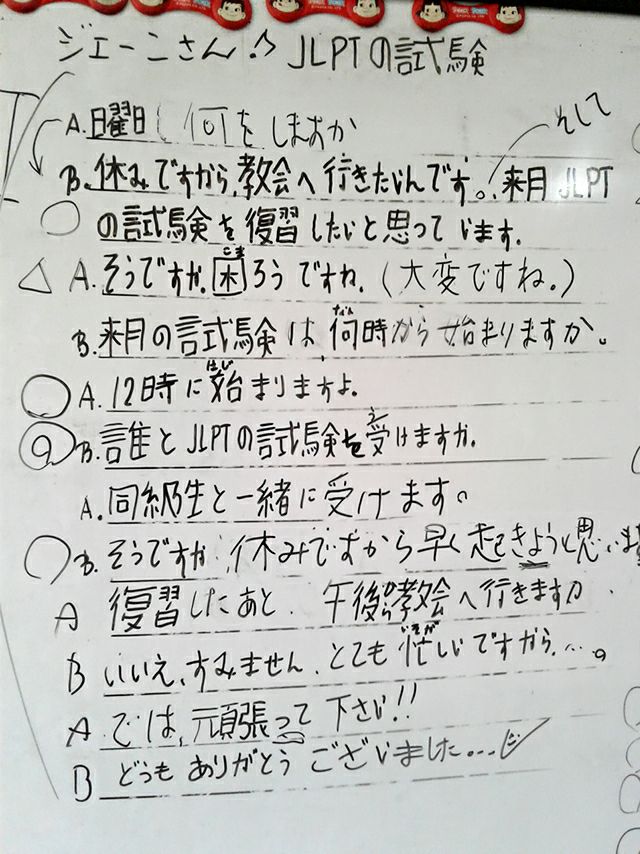 ジェーンさん JLPTの試験
そして
A. 日曜日 何をしますか
B. 休みですから、教会へ行きたいんです。来月 JLPT
の試験を復習したいと思っています。
こま
A. そうですか。困ろうですね。(大変ですね。)
なん
B. 来月の試験は何時から始まりますか。
はじ
A. 12時に始まりますよ。
う
B. 誰とJLPTの試験を受けますか。
A. 同級生と一緒に受けます。
B. そうですか 休みですから早く起きようと思います
A 復習したあと、午後から教会へ行きますか
いそが
B いいえ、すみません、とても忙しいですから....。
A では、頑張って下さい!!
B どうもありがとうございました...